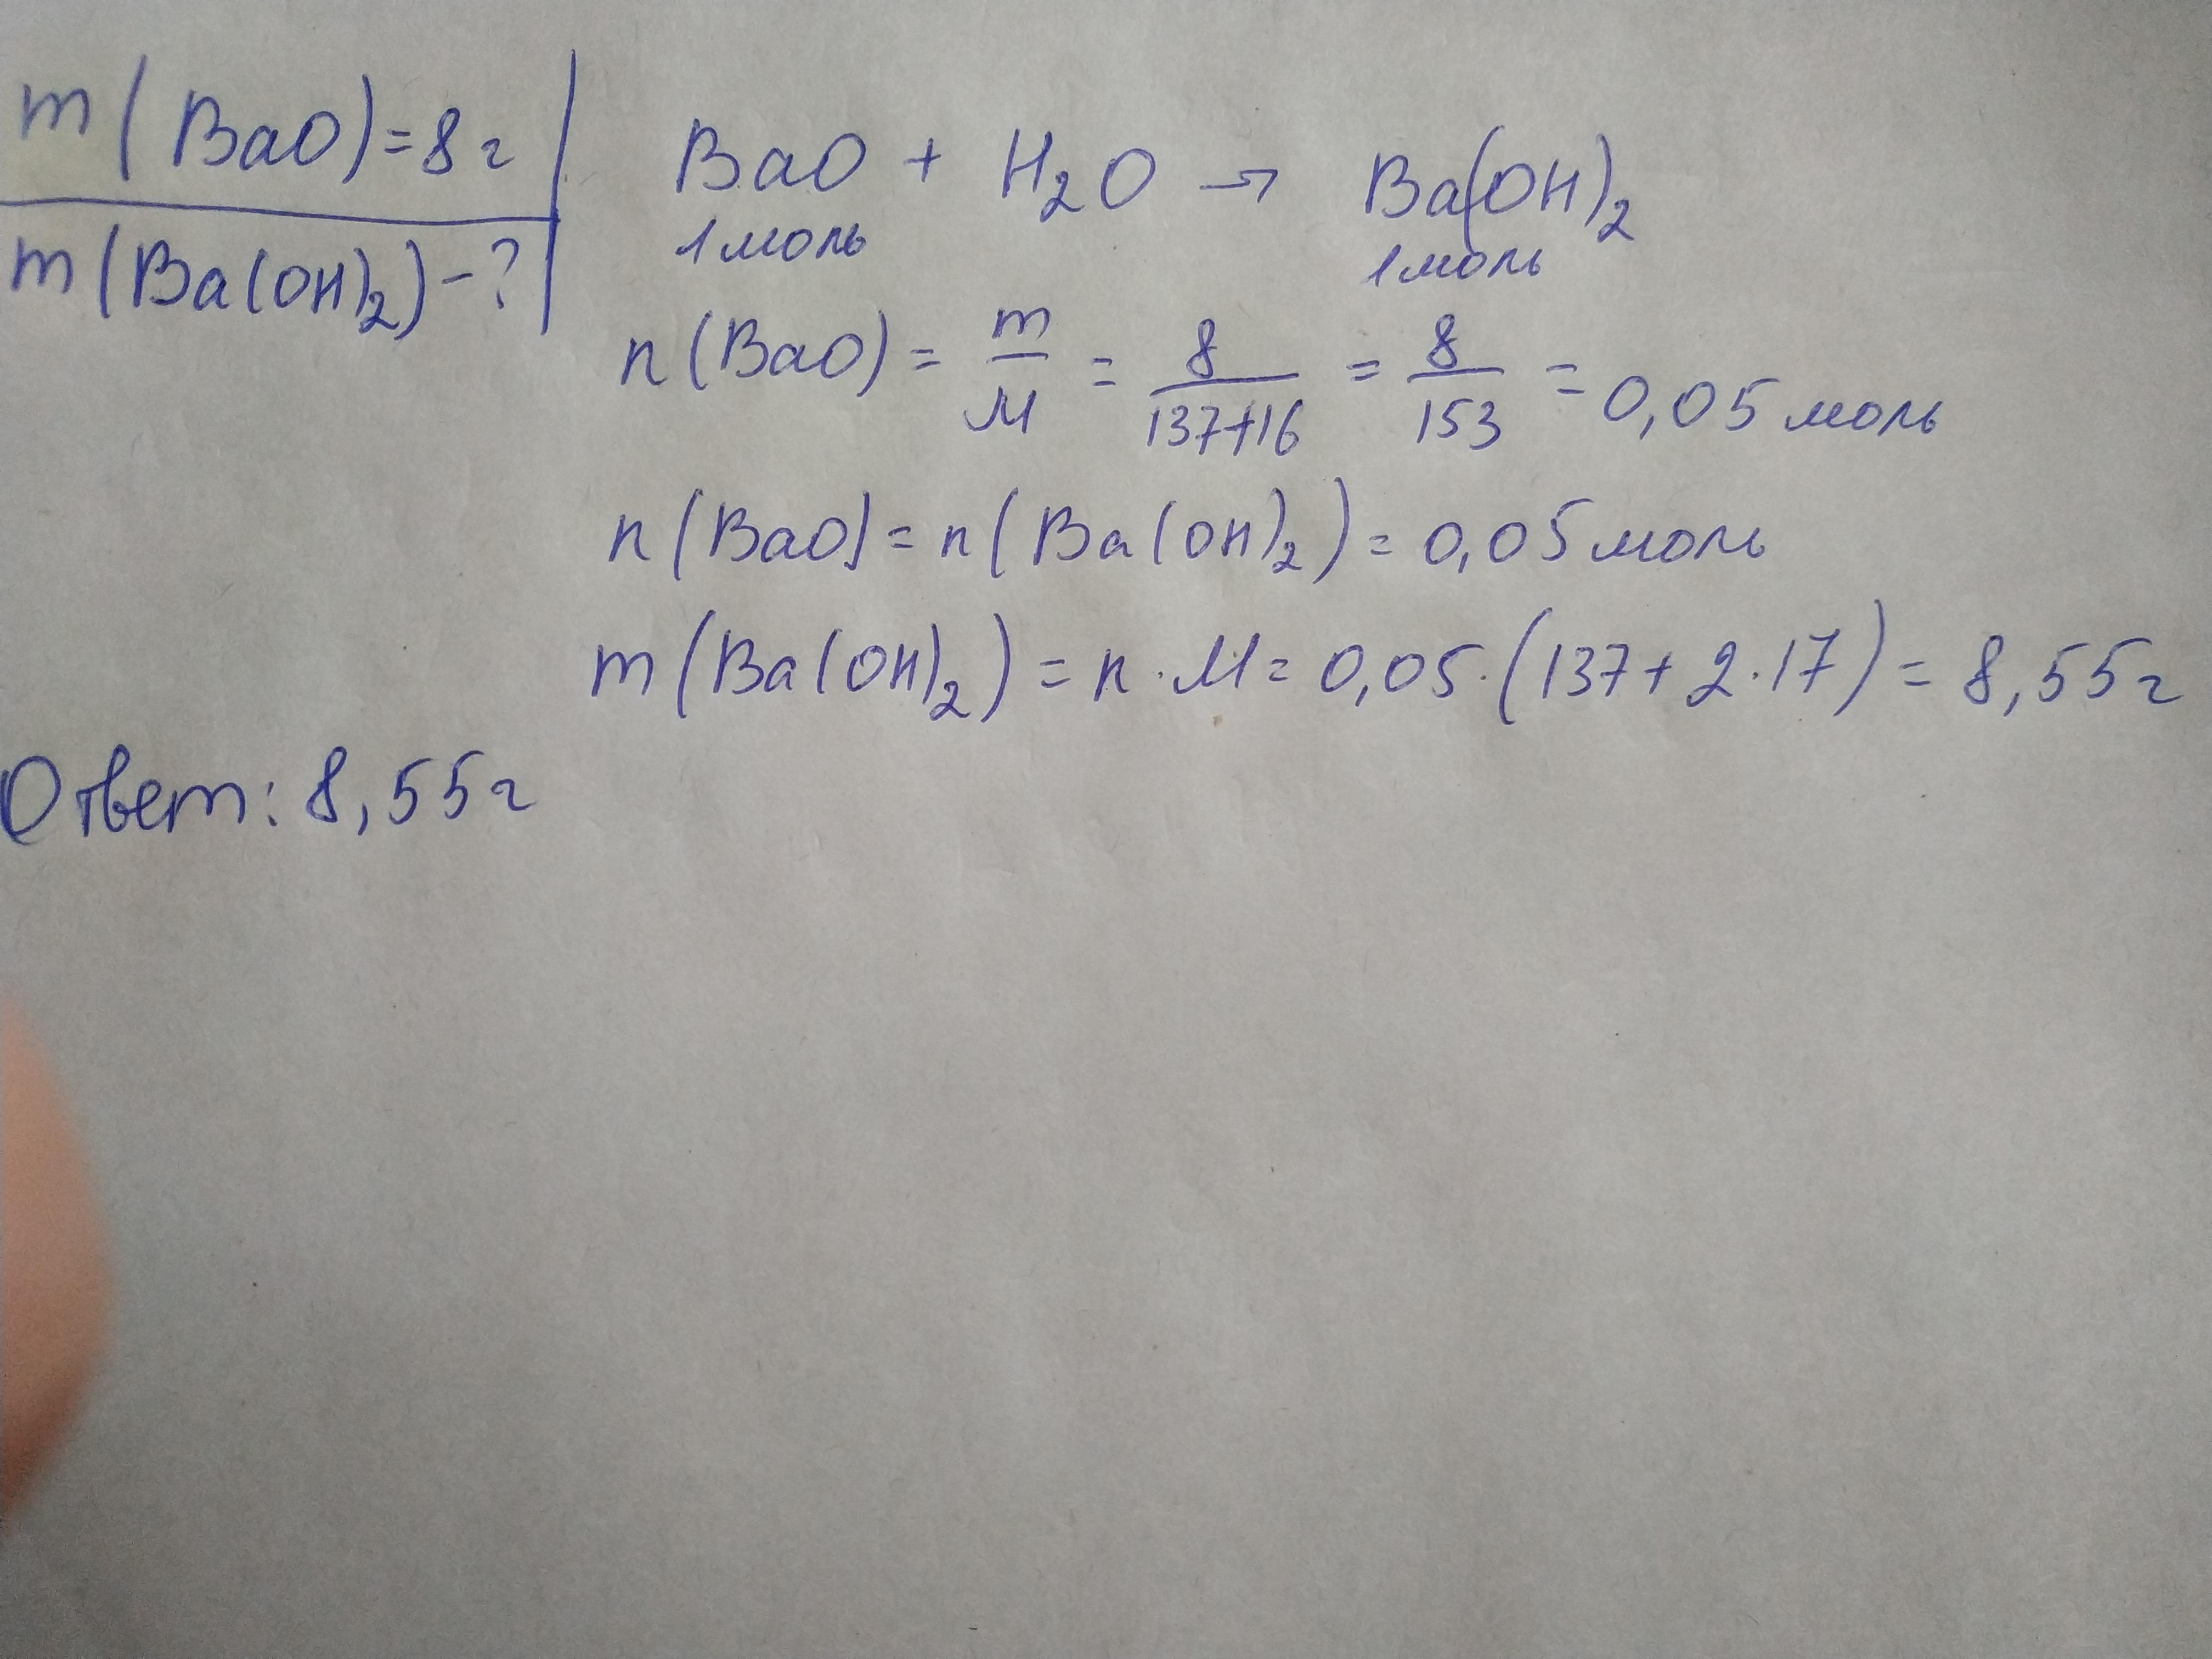 m(BaO)=8г
m(Ba(OH)₂)-?
BaO + H₂O → Ba(OH)₂
1моль 1моль
n(BaO) = m/M = 8/137+16 = 8/153 = 0,05 моль
n(BaO) = n(Ba(OH)₂) = 0,05 моль
m(Ba(OH)₂) = n·M = 0,05·(137+2·17) = 8,55г
Ответ: 8,55г